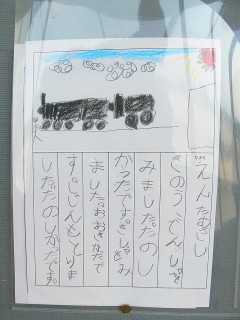 きのうでんしゃを
みました。たのし
かったです。きしゃもみ
ました。おおきかたで
とりま
した。たのしかったです。